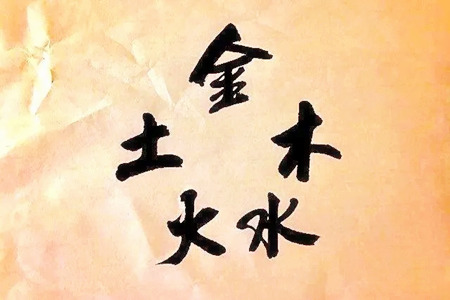 金
木
水
火
土